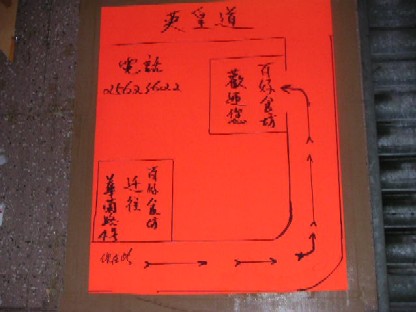 英皇道
電話
百好食坊
歡迎您
百好食坊
遷往
華蘭路
你在此